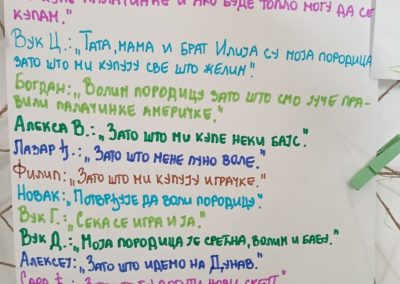 ПАЛАЧИНКЕ И АКО БУДЕ ТОПЛО МОГУ ДА СЕ
КУПАМ."
ВУК Ц.:„ТАТА, МАМА И БРАТ ИЛИЈА СУ МОЈА ПОРОДИЦА
ЗАТО ШТО МИ КУПУЈУ СВЕ ШТО ЖЕЛИМ".
БОГДАН:„ВОЛИМ ПОРОДИЦУ ЗАТО ШТО СМО ЈУЧЕ ПРА-
ВИЛИ ПАЛАЧИНКЕ АМЕРИЧКЕ."
АЛЕКСА В.:„ЗАТО ШТО МИ КУПЕ НЕКИ БАЈС."
ЛАЗАР Ђ.:„ЗАТО ШТО МЕНЕ ПУНО ВОЛЕ."
ФИЛИП:„ЗАТО ШТО МИ КУПУЈУ ИГРАЧКЕ."
НОВАК:„ПОТВРЂУЈЕ ДА ВОЛИ ПОРОДИЦУ."
ВУК Г.:„СЕКА СЕ ИГРА И ЈА."
ВУК Д.:„МОЈА ПОРОДИЦА ЈЕ СРЕЋНА, ВОЛИМ И БАБУ."
АЛЕКСЕЈ:„ЗАТО ШТО ИДЕМО НА ДУНАВ."